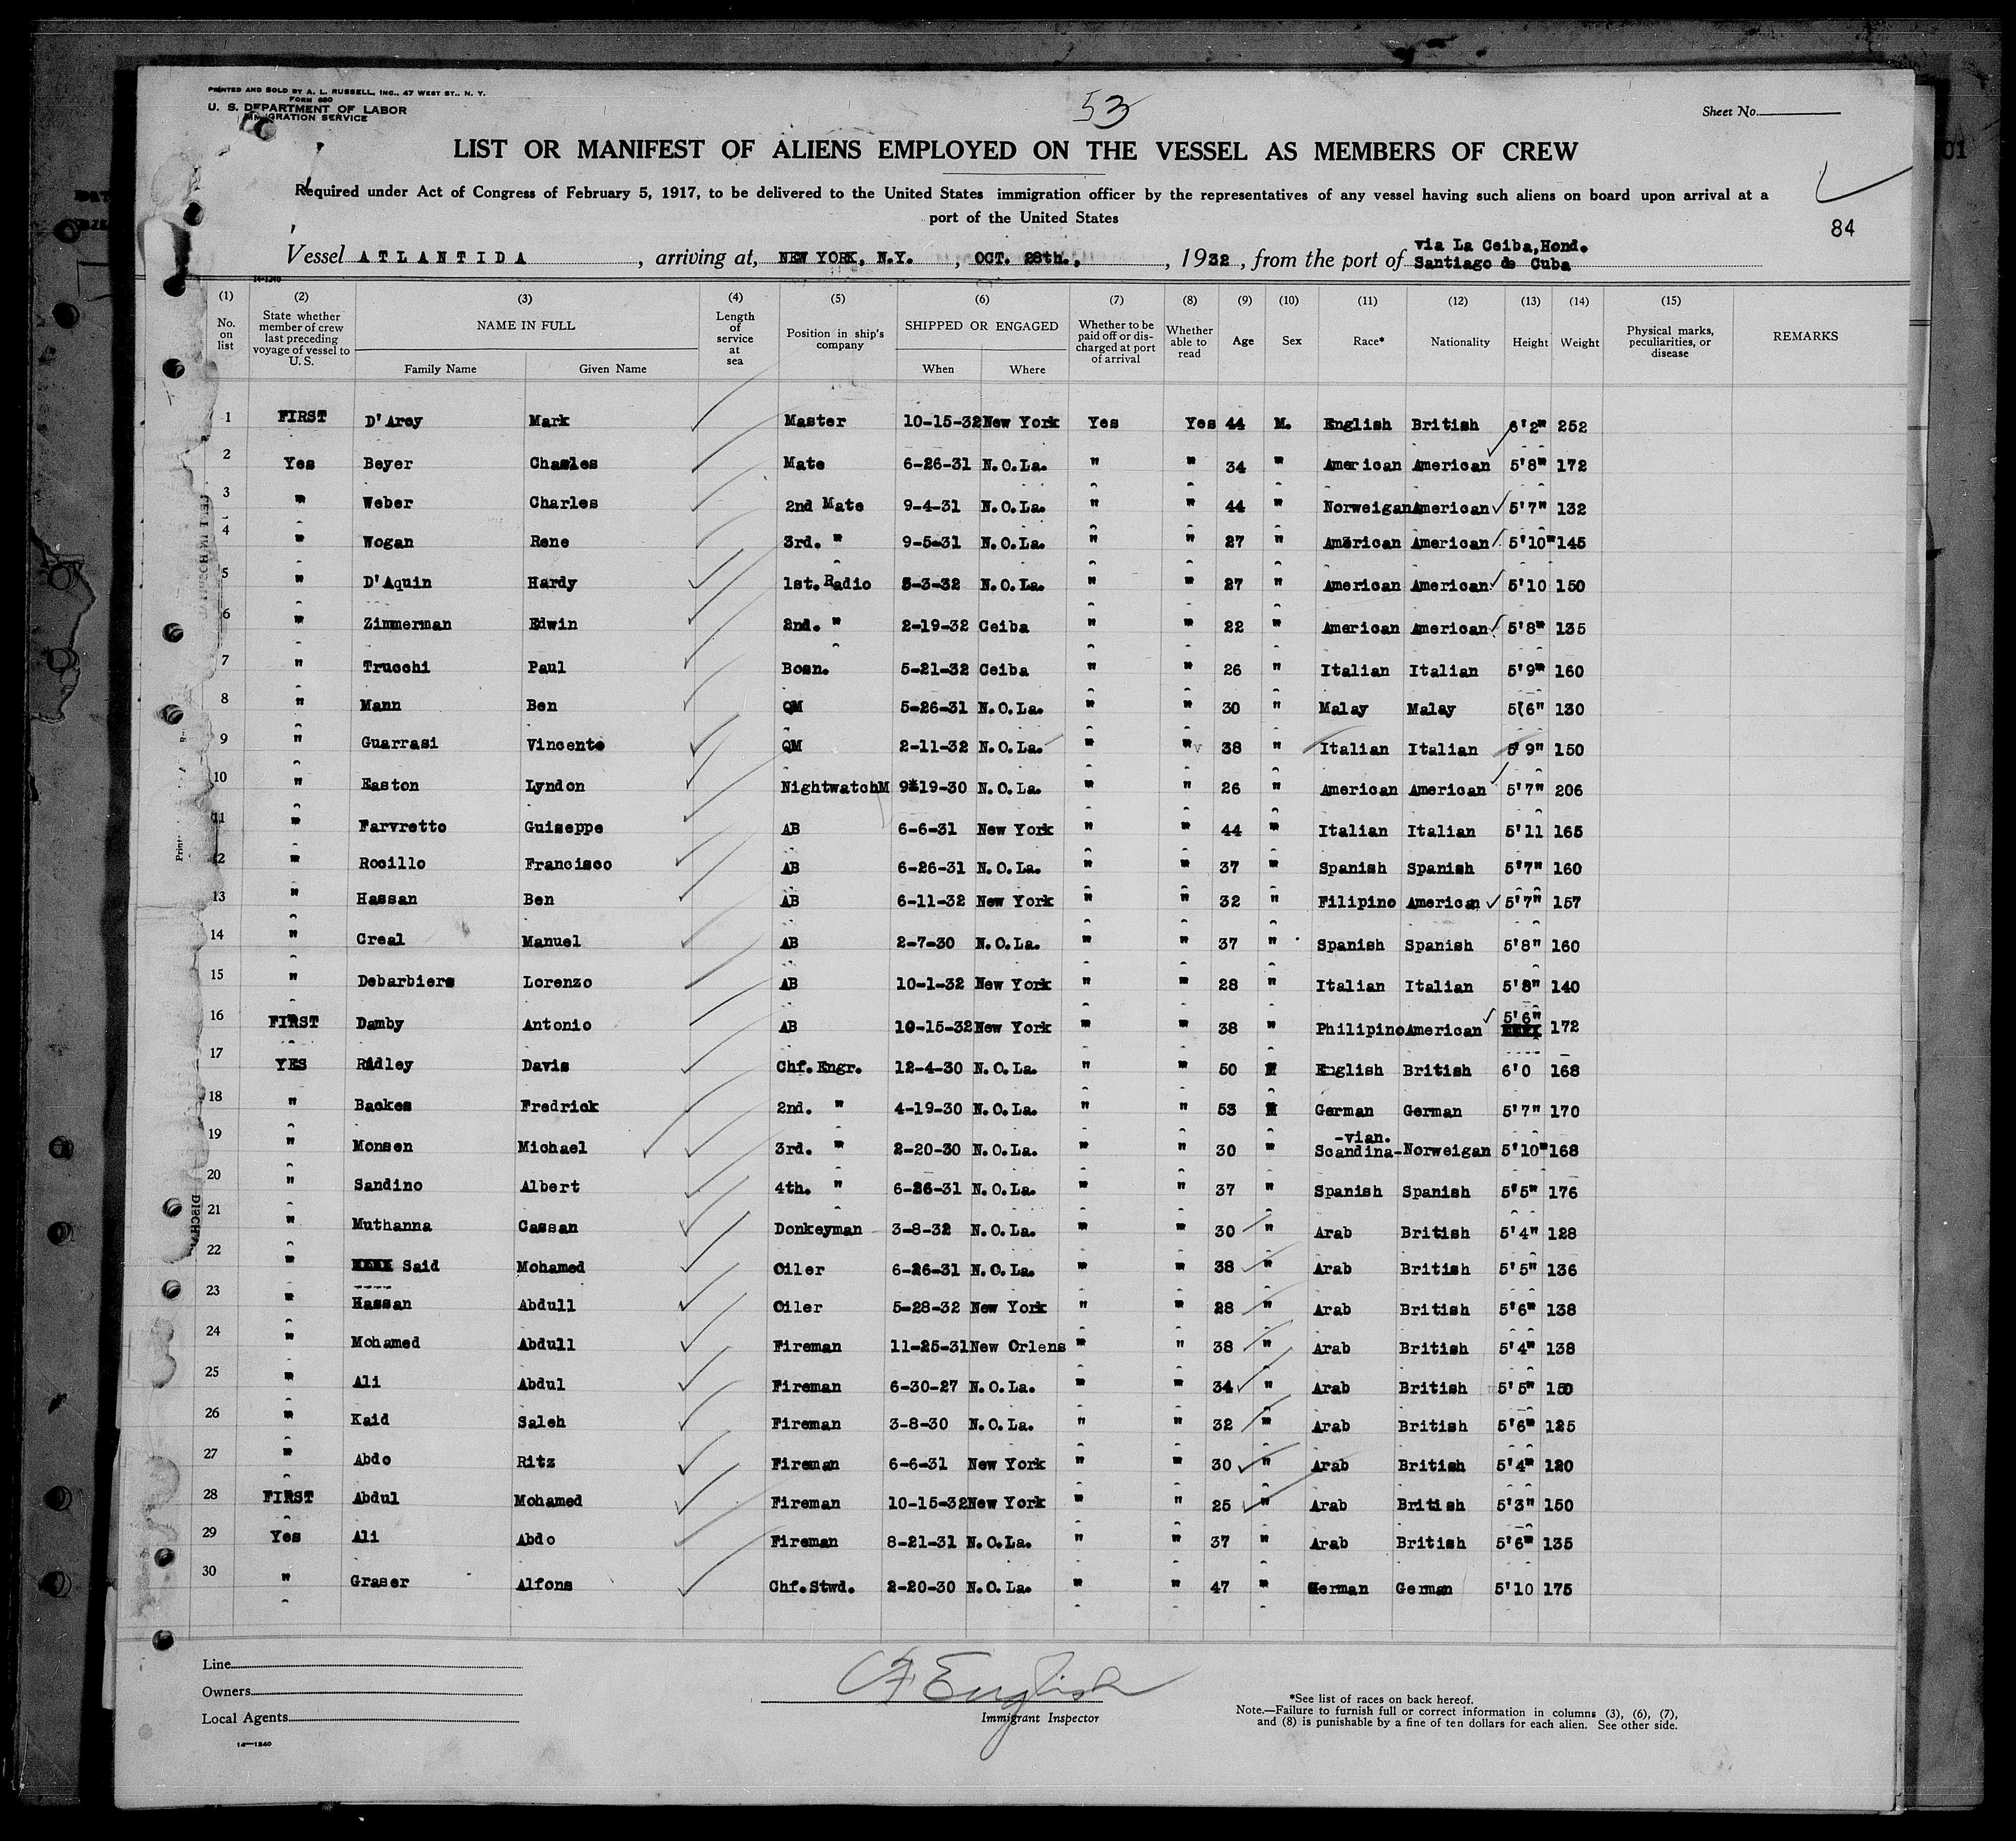 PRINTED AND SOLD BY A. L. RUSSELL, INC., 47 WEST ST., N. Y.
FORM 680
U. S. DEPARTMENT OF LABOR
IMMIGRATION SERVICE
53
Sheet No.
LIST OR MANIFEST OF ALIENS EMPLOYED ON THE VESSEL AS MEMBERS OF CREW
Required under Act of Congress of February 5, 1917, to be delivered to the United States immigration officer by the representatives of any vessel having such aliens on board upon arrival at a
port of the United States
84
via La Ceiba, Hond.
Vessel ATLANTIDA, arriving at, NEW YORK, N.Y., OCT. 28th., 1932, from the port of Santiago de Cuba
14-1240
(1) (2) (3) (4) (5) (6) (7) (8) (9) (10) (11) (12) (13) (14) (15)
No. on list | State whether member of crew last preceding voyage of vessel to U. S. | NAME IN FULL | Length of service at sea | Position in ship's company | SHIPPED OR ENGAGED | Whether to be paid off or discharged at port of arrival | Whether able to read | Age | Sex | Race* | Nationality | Height | Weight | Physical marks, peculiarities, or disease | REMARKS
Family Name | Given Name | When | Where
1 FIRST D'Arcy Mark Master 10-15-32 New York Yes Yes 44 M. English British 6'2" 252
2 Yes Beyer Charles Mate 6-26-31 N.O.La. " " 34 " American American 5'8" 172
3 " Weber Charles 2nd Mate 9-4-31 N.O.La. " " 44 " Norweigan American 5'7" 132
4 " Wogan Rene 3rd. " 9-5-31 N.O.La. " " 27 " American American 5'10" 145
5 " D'Aquin Hardy 1st. Radio 5-3-32 N.O.La. " " 27 " American American 5'10 150
6 " Zimmerman Edwin 2nd. " 2-19-32 Ceiba " " 22 " American American 5'8" 135
7 " Trucchi Paul Bosn. 5-21-32 Ceiba " " 26 " Italian Italian 5'9" 160
8 " Mann Ben QM 5-26-31 N.O.La. " " 30 " Malay Malay 5(6" 130
9 " Guarrasi Vincento QM 2-11-32 N.O.La. " " 38 " Italian Italian 5'9" 150
10 " Easton Lyndon NightwatchM 9*19-30 N.O.La. " " 26 " American American 5'7" 206
11 " Farvretto Guiseppe AB 6-6-31 New York " " 44 " Italian Italian 5'11 165
12 " Rocillo Francisco AB 6-26-31 N.O.La. " " 37 " Spanish Spanish 5'7" 160
13 " Hassan Ben AB 6-11-32 New York " " 32 " Filipino American 5'7" 157
14 " Creal Manuel AB 2-7-30 N.O.La. " " 37 " Spanish Spanish 5'8" 160
15 " Debarbiere Lorenzo AB 10-1-32 New York " " 28 " Italian Italian 5'8" 140
16 FIRST Damby Antonio AB 10-15-32 New York " " 38 " Philipino American 5'6" 172
17 YES Ridley Davis Chf. Engr. 12-4-30 N.O.La. " " 50 M English British 6'0 168
18 " Backes Fredrick 2nd. " 4-19-30 N.O.La. " " 53 M German German 5'7" 170
19 " Monsen Michael 3rd. " 2-20-30 N.O.La. " " 30 " Scandina-vian. Norweigan 5'10" 168
20 " Sandino Albert 4th. " 6-26-31 N.O.La. " " 37 " Spanish Spanish 5'5" 176
21 " Muthanna Cassan Donkeyman 3-8-32 N.O.La. " " 30 " Arab British 5'4" 128
22 " Said Mohamed Oiler 6-26-31 N.O.La. " " 38 " Arab British 5'5" 136
23 " Hassan Abdull Oiler 5-28-32 New York " " 28 " Arab British 5'6" 138
24 " Mohamed Abdull Fireman 11-25-31 New Orlens " " 38 " Arab British 5'4" 138
25 " Ali Abdul Fireman 6-30-27 N.O.La. " " 34 " Arab British 5'5" 150
26 " Kaid Saleh Fireman 3-8-30 N.O.La. " " 32 " Arab British 5'6" 125
27 " Abdo Ritz Fireman 6-6-31 New York " " 30 " Arab British 5'4" 120
28 FIRST Abdul Mohamed Fireman 10-15-32 New York " " 25 " Arab British 5'3" 150
29 Yes Ali Abdo Fireman 8-21-31 N.O.La. " " 37 " Arab British 5'6" 135
30 " Graser Alfons Chf. Stwd. 2-20-30 N.O.La. " " 47 " German German 5'10 175
Line
Owners
Local Agents
14-1240
English
Immigrant Inspector
*See list of races on back hereof.
Note.—Failure to furnish full or correct information in columns (3), (6), (7),
and (8) is punishable by a fine of ten dollars for each alien. See other side.